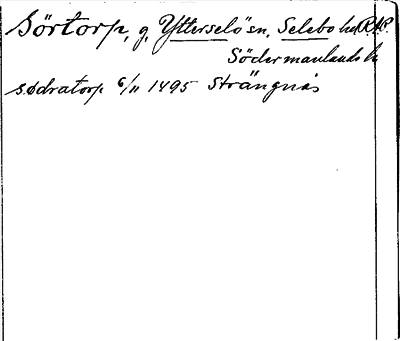 Sörtorp, g, Ytterselö sn, Selebo hd RAP.
Södermanlands l.
sødratorp 6/11 1495 Strängnäs